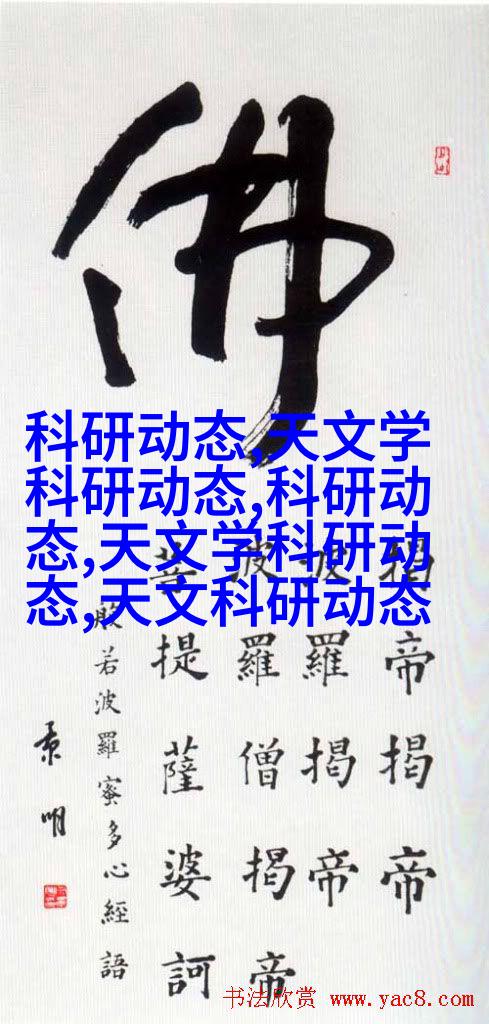 佛
科研动态,天文学
科研动态,科研动
态,天文学科研动
态,天文科研动态
揭帝揭帝
波羅揭帝
波羅僧揭帝
菩提薩婆訶
般若波羅蜜多心經語
书法欣赏 www.yac8.com